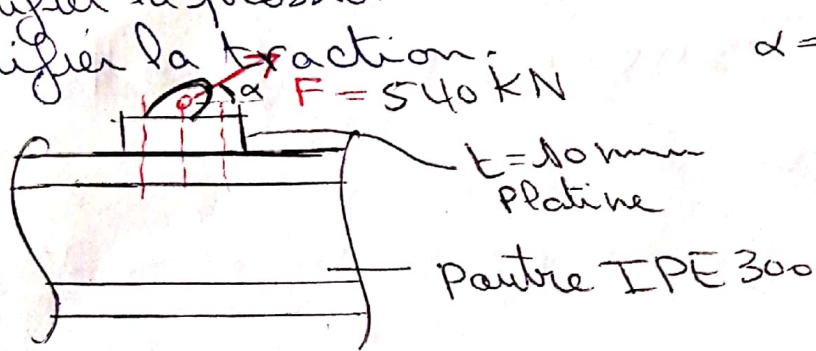 ifier la
ifier la traction.
α =
α F = 540 KN
t = 10 mm
Platine
Poutre IPE 300